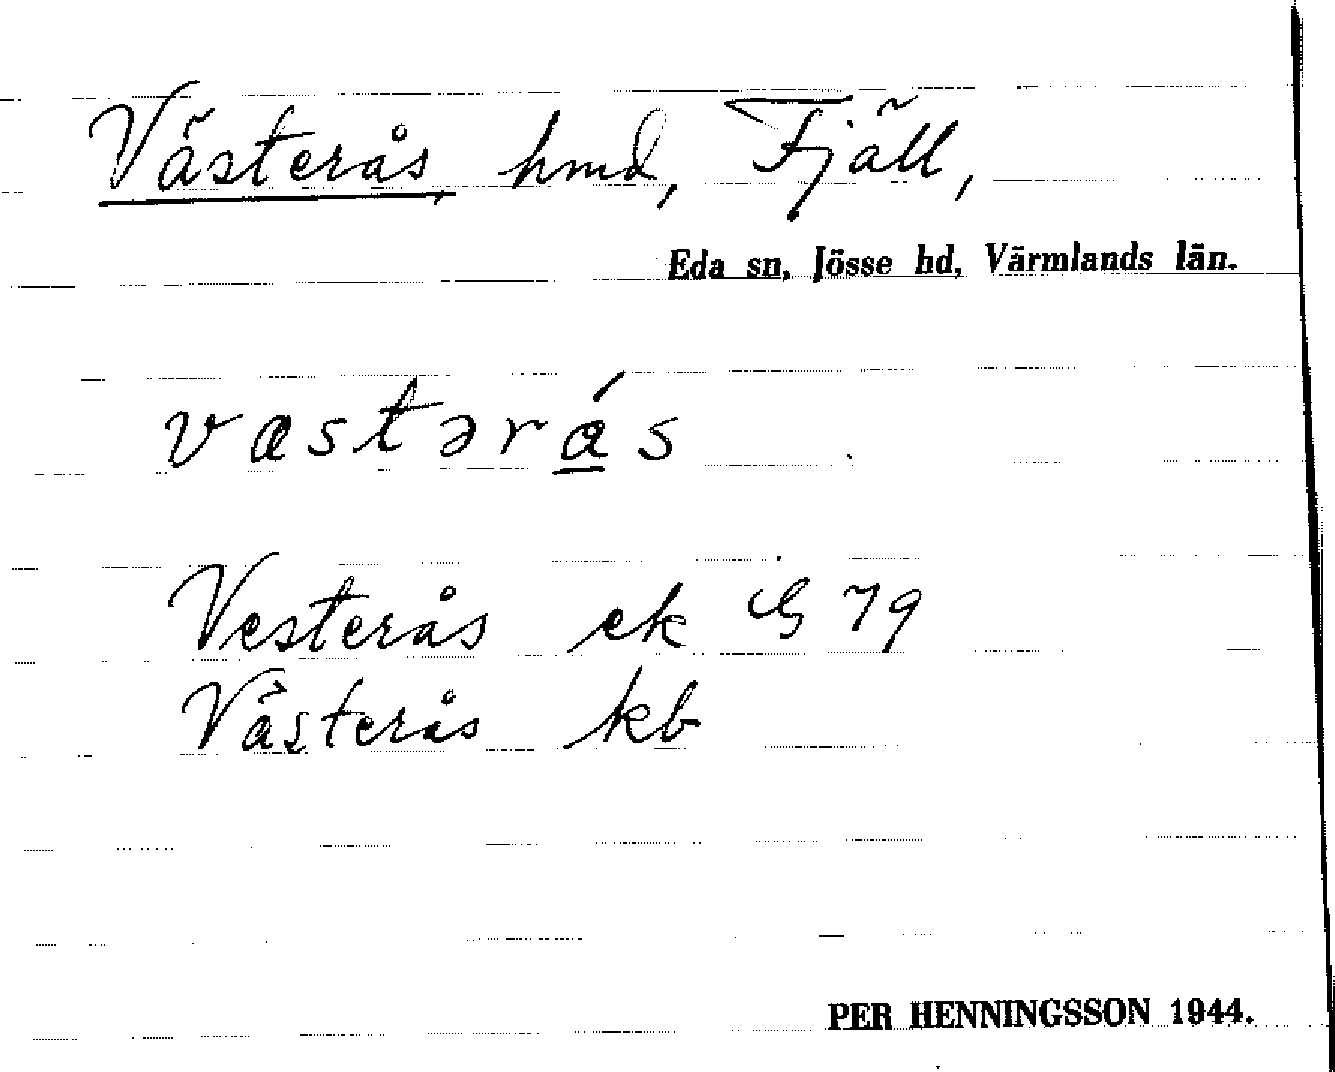 Västerås, hmd, Fjäll,
Eda sn, Jösse hd, Värmlands län.
västərá̱s
Vesterås ek G 79
Västerås kb
PER HENNINGSSON 1944.